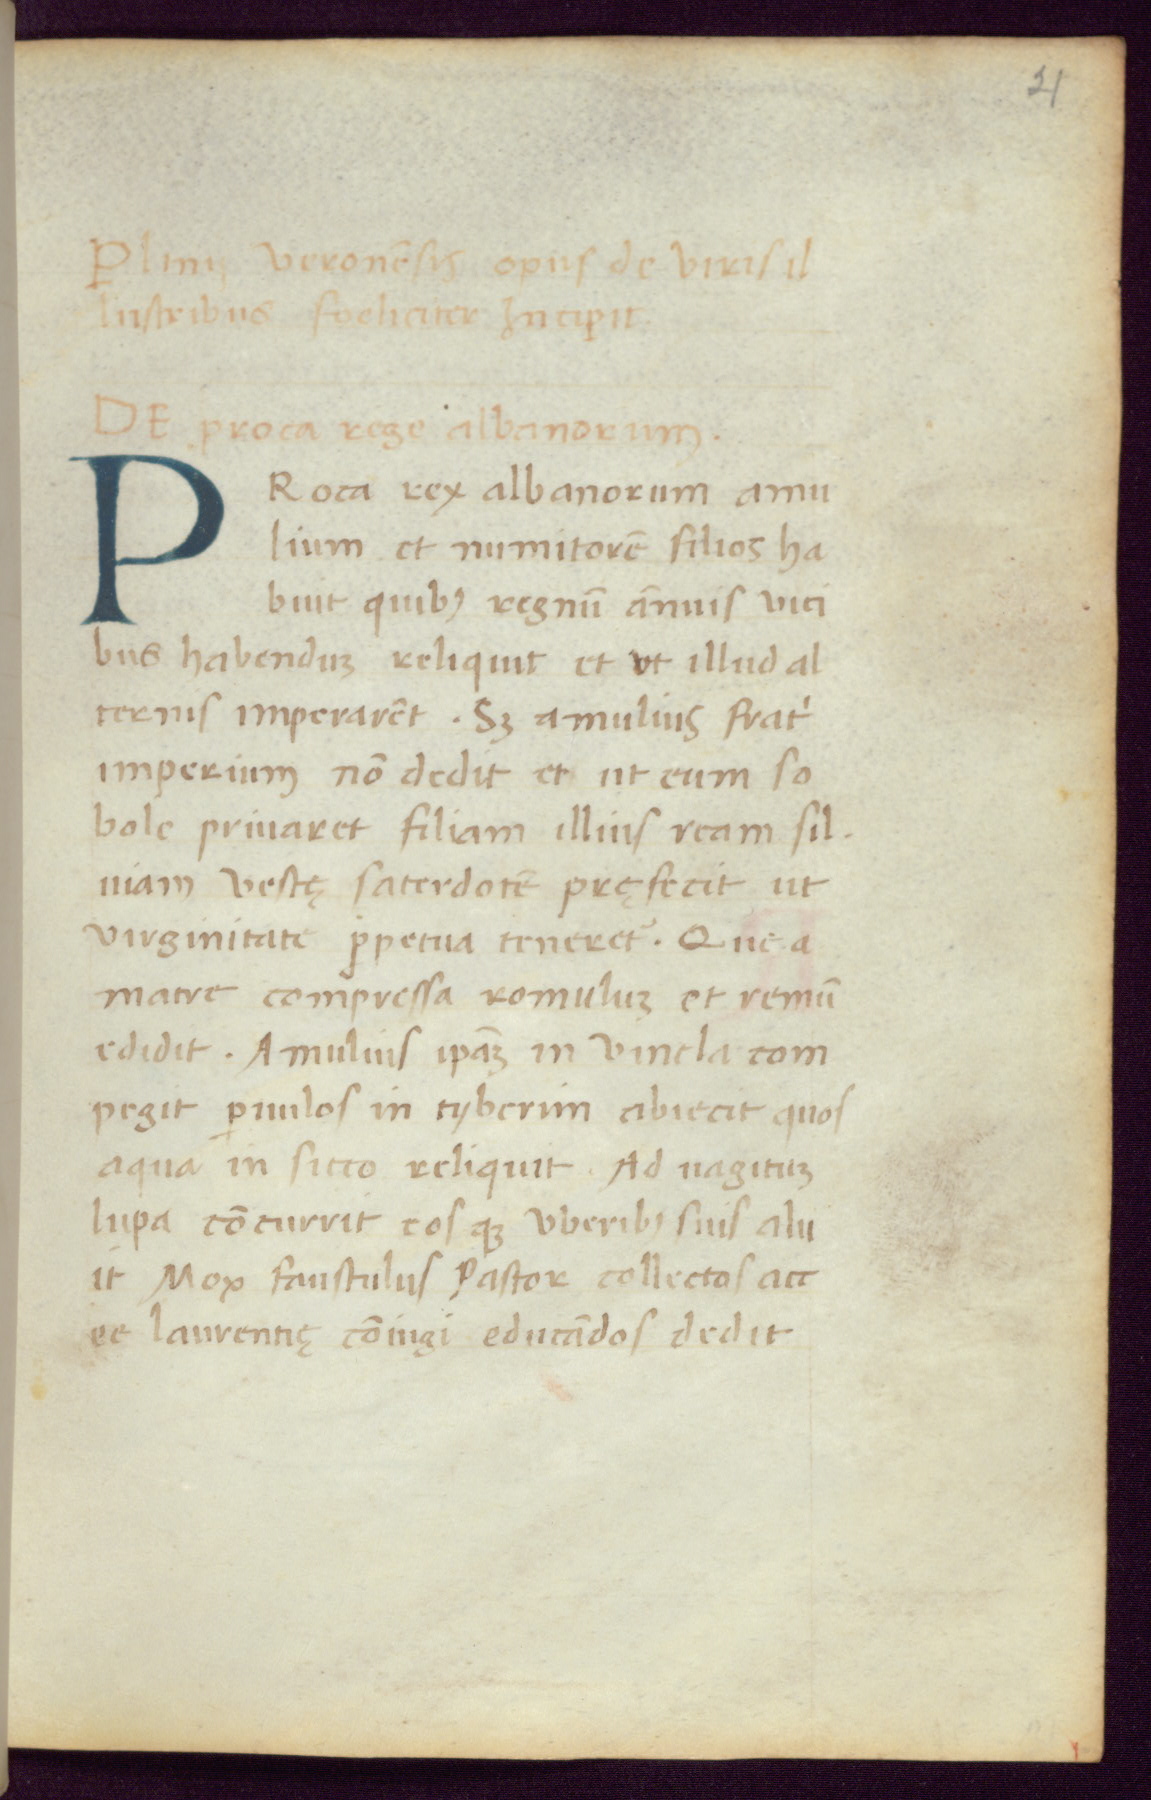 21
Plinij veronēsis opus de viris il
lustribus foeliciter Incipit.
DE proca rege albanorum.
PRoca rex albanorum amu
lium et numitorē filios ha
buit quibꝰ regnū ānuis vici
bus habenduꝫ reliquit et vt illud al
ternis imperarēt . Sꝫ amulius frat̉
imperium nō dedit et ut eum so
bole priuaret filiam illius ream sil-
uiam vestę sacerdotē pręfecit ut
virginitate ꝑpetua teneret᷑. Que a
matre compressa romuluꝫ et remū
edidit . Amulius ip̄aꝫ in vincla com
pegit ꝑuulos in tyberim abiecit quos
aqua in sicco reliquit . Ad uagituꝫ
lupa cōcurrit eosqꝫ vberibꝰ suis alu
it Mox faustulus Pastor collectos acc
ee laurentię cōiugi educādos dedit